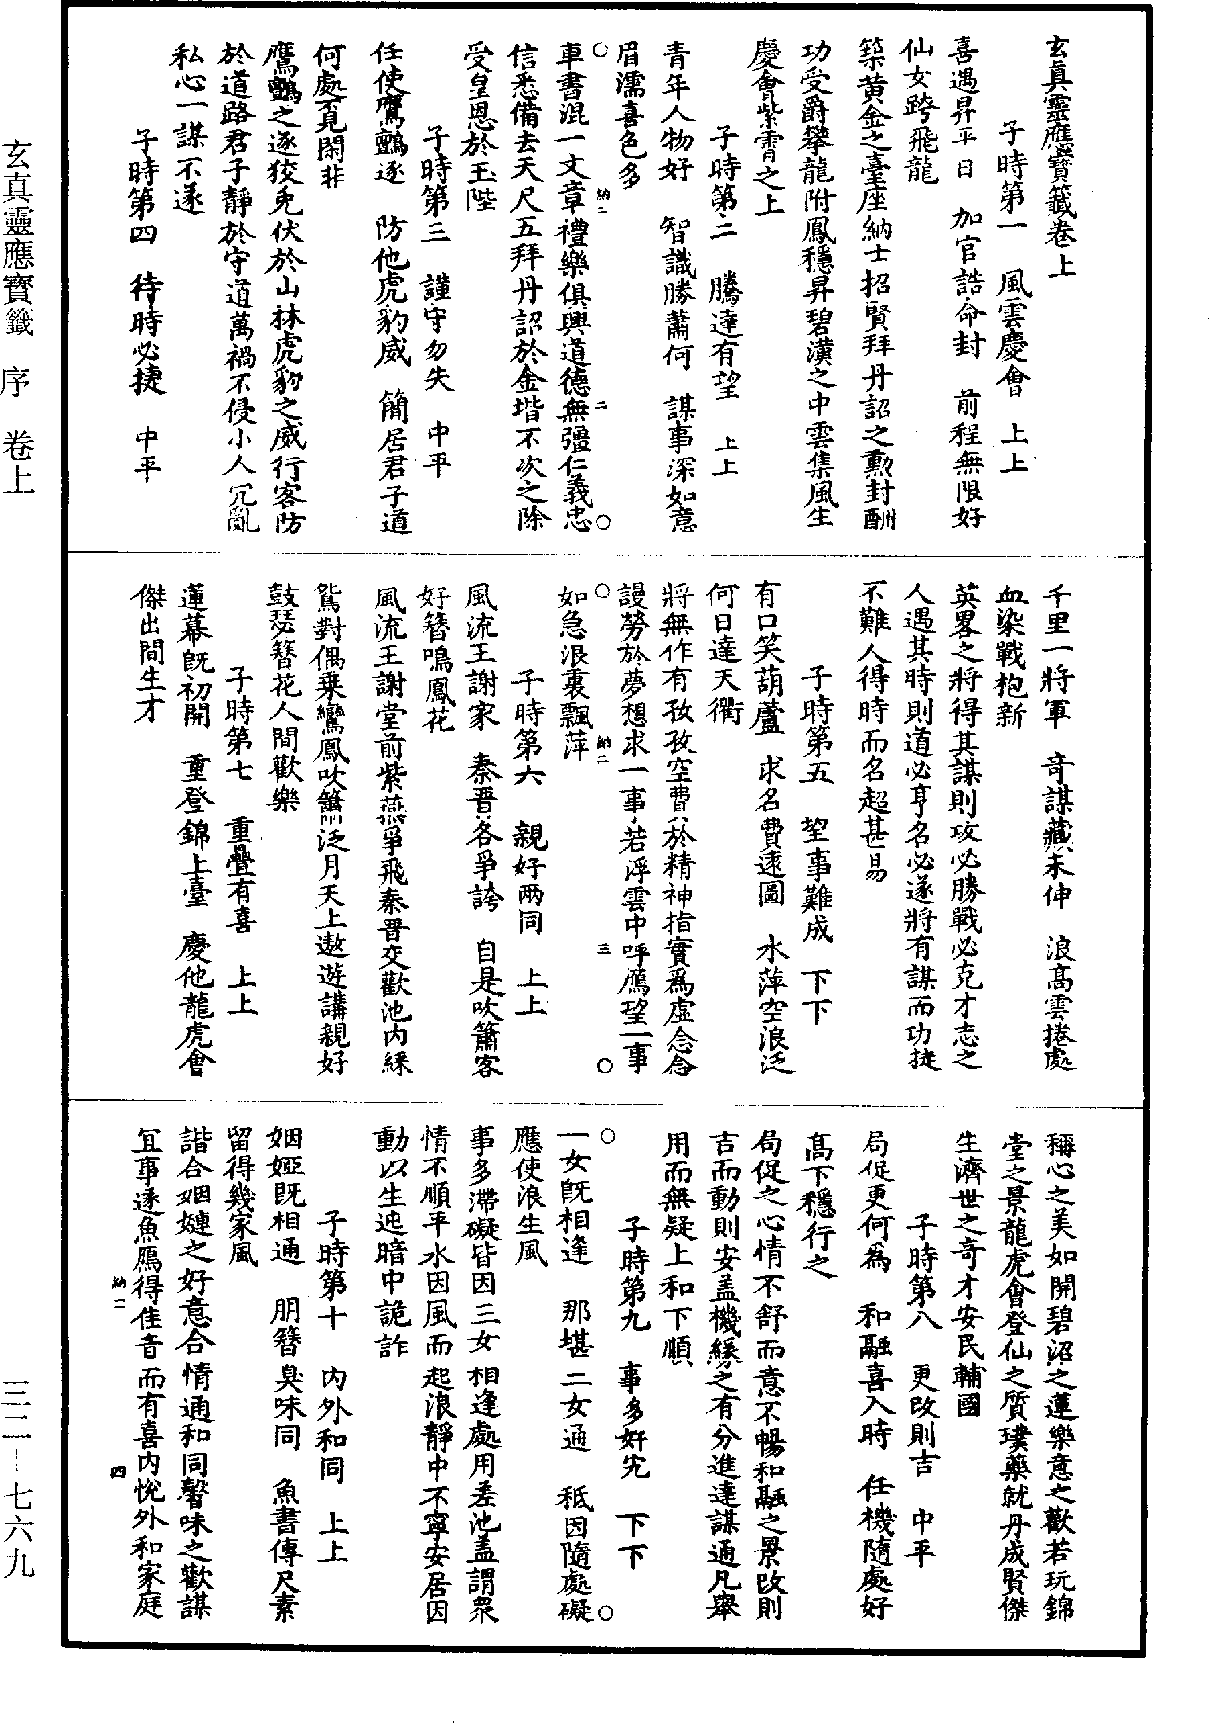 玄真靈應寶籤卷上
子時第一　風雲慶會　上上
喜遇昇平日　加官誥命封　前程無限好
仙女跨飛龍
築黃金之臺座納士招賢拜丹詔之勲封酬
功受爵攀龍附鳳穩昇碧漢之中雲集風生
慶會紫霄之上
子時第二　騰達有望　上上
青年人物好　智識勝蕭何　謀事深如意
眉濡喜色多
車書混一文章禮樂俱興道德無彊仁義忠
信悉備去天尺五拜丹詔於金堦不次之除
受皇恩於玉陛
子時第三　謹守勿失　中平
任使鷹鸇逐　防他虎豹威　簡居君子道
何處覓閑非
鷹鸇之逐狡兔伏於山林虎豹之威行客防
於道路君子靜於守道萬禍不侵小人冗亂
私心一謀不遂
子時第四　待時必捷　中平
千里一將軍　竒謀藏未伸　浪高雲捲處
血染戰袍新
英畧之將得其謀則攻必勝戰必克才志之
人遇其時則道必亨名必遂將有謀而功捷
不難人得時而名超甚易
子時第五　望事難成　下下
有口笑葫蘆　求名費遠圖　水萍空浪泛
何日達天衢
將無作有孜孜空費於精神指實爲虛念念
謾勞於夢想求一事若浮雲中呼鴈望一事
如急浪裏飄萍
子時第六　親好兩同　上上
風流王謝家　秦晋各爭誇　自是吹簫客
好簪鳴鳳花
風流王謝堂前紫燕爭飛秦晋交歡池內綵
鴛對偶乗鸞鳳吹簫泛月天上遨遊講親好
鼓瑟簪花人間歡樂
子時第七　重疊有喜　上上
蓮幕既初開　重登錦上臺　慶他龍虎會
傑出間生才
稱心之美如開碧沼之蓮樂意之歡若玩錦
堂之景龍虎會登仙之質璞藥就丹成賢傑
生濟世之奇才安民輔國
子時第八　更改則吉　中平
局促更何為　和融喜入時　任機隨處好
髙下穩行之
局促之心情不舒而意不暢和融之景改則
吉而動則安盖機緣之有分進達謀通凡舉
用而無疑上和下順
子時第九　事多奸宄　下下
一女既相逢　那堪二女通　秪因隨處礙
應使浪生風
事多滯礙皆因三女相逢處用差池盖謂眾
情不順平水因風而起浪靜中不寧安居因
動以生迍暗中詭詐
子時第十　內外和同　上上
姻婭既相通　朋簪臭味同　魚書傳尺素
留得幾家風
諧合姻嫤之好意合情通和同馨味之歡謀
冝事遂魚鴈得佳音而有喜內悅外和家庭
玄真靈應寶籤　序　卷上
三二—七六九